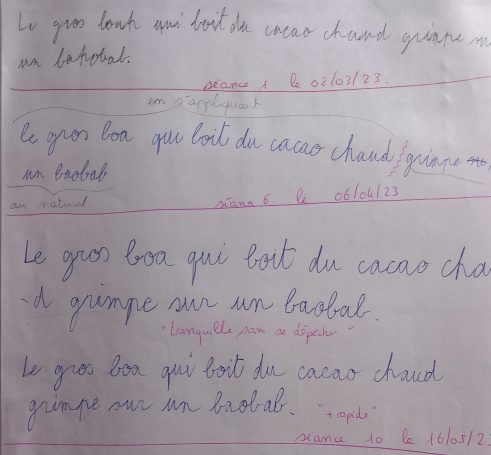 Le gros boah qui boit du cacao chaud grimpe
un bahobab.
séance 1 le 02/03/23
en s'appliquant
Le gros boa qui boit du cacao chaud grimpe su
un baobab
au naturel
séance 6 le 06/04/23
Le gros boa qui boit du cacao cha
-d grimpe sur un baobab.
"tranquille sans se dépêcher"
Le gros boa qui boit du cacao chaud
grimpe sur un baobab. "+ rapide"
séance 10 le 16/05/23